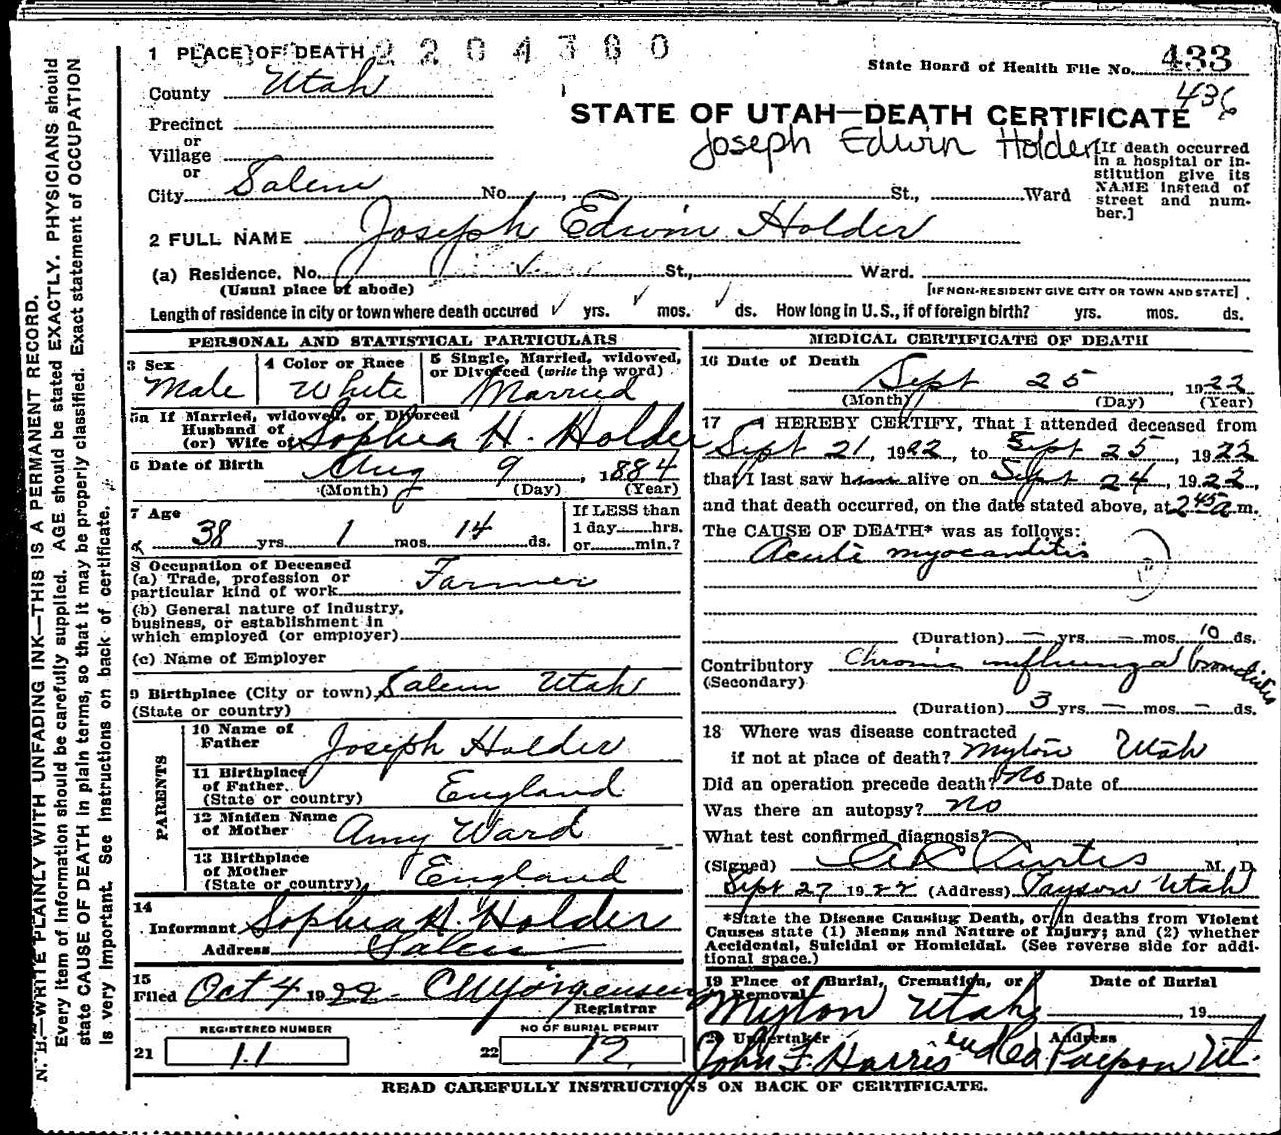 1 PLACE OF DEATH 2204380
State Board of Health File No. 433
436
County Utah
STATE OF UTAH—DEATH CERTIFICATE
Joseph Edwin Holder
Precinct
or
Village
or
City Salem No. St., Ward
[If death occurred
in a hospital or in-
stitution give its
NAME instead of
street and num-
ber.]
2 FULL NAME Joseph Edwin Holder
(a) Residence. No. St., Ward.
(Usual place of abode)
[IF NON-RESIDENT GIVE CITY OR TOWN AND STATE]
Length of residence in city or town where death occured ✓ yrs. ✓ mos. ✓ ds. How long in U.S., if of foreign birth? yrs. mos. ds.
PERSONAL AND STATISTICAL PARTICULARS
3 Sex
Male
4 Color or Race
White
5 Single, Married, widowed,
or Divorced (write the word)
Married
5a If Married, widowed, or Divorced
Husband of
(or) Wife of Sophia H. Holder
6 Date of Birth Aug 9, 1884
(Month) (Day) (Year)
7 Age
38 yrs. 1 mos. 14 ds.
If LESS than
1 day hrs.
or min.?
8 Occupation of Deceased
(a) Trade, profession or
particular kind of work Farmer
(b) General nature of industry,
business, or establishment in
which employed (or employer)
(c) Name of Employer
9 Birthplace (City or town) Salem Utah
(State or country)
PARENTS
10 Name of
Father Joseph Holder
11 Birthplace
of Father
(State or country) England
12 Maiden Name
of Mother Amy Ward
13 Birthplace
of Mother
(State or country) England
14
Informant Sophia H. Holder
Address Salem
15
Filed Oct 4 1922 C M Jorgensen
Registrar
REGISTERED NUMBER
21 11
NO OF BURIAL PERMIT
22 12
MEDICAL CERTIFICATE OF DEATH
16 Date of Death
Sept 25 1922
(Month) (Day) (Year)
17 I HEREBY CERTIFY, That I attended deceased from
Sept 21, 1922, to Sept 25, 1922
that I last saw h alive on Sept 24, 1922,
and that death occurred, on the date stated above, at 2 45 a m.
The CAUSE OF DEATH* was as follows:
Acute myocarditis
(Duration) — yrs. — mos. 10 ds.
Contributory Chronic influenzal bronchitis
(Secondary)
(Duration) 3 yrs. — mos. — ds.
18 Where was disease contracted
if not at place of death? Myton Utah
Did an operation precede death? No Date of
Was there an autopsy? no
What test confirmed diagnosis?
(Signed) Curtis M. D.
Sept 27 1922 (Address) Payson Utah
*State the Disease Causing Death, or in deaths from Violent
Causes state (1) Means and Nature of Injury; and (2) whether
Accidental, Suicidal or Homicidal. (See reverse side for addi-
tional space.)
19 Place of Burial, Cremation, or
Removal
Date of Burial
Myton Utah , 19
20 Undertaker Address
John F. Harris and Co Payson Ut.
READ CAREFULLY INSTRUCTIONS ON BACK OF CERTIFICATE.
N. B.—WRITE PLAINLY WITH UNFADING INK—THIS IS A PERMANENT RECORD.
Every item of information should be carefully supplied. AGE should be stated EXACTLY. PHYSICIANS should
state CAUSE OF DEATH in plain terms, so that it may be properly classified. Exact statement of OCCUPATION
is very important. See instructions on back of certificate.